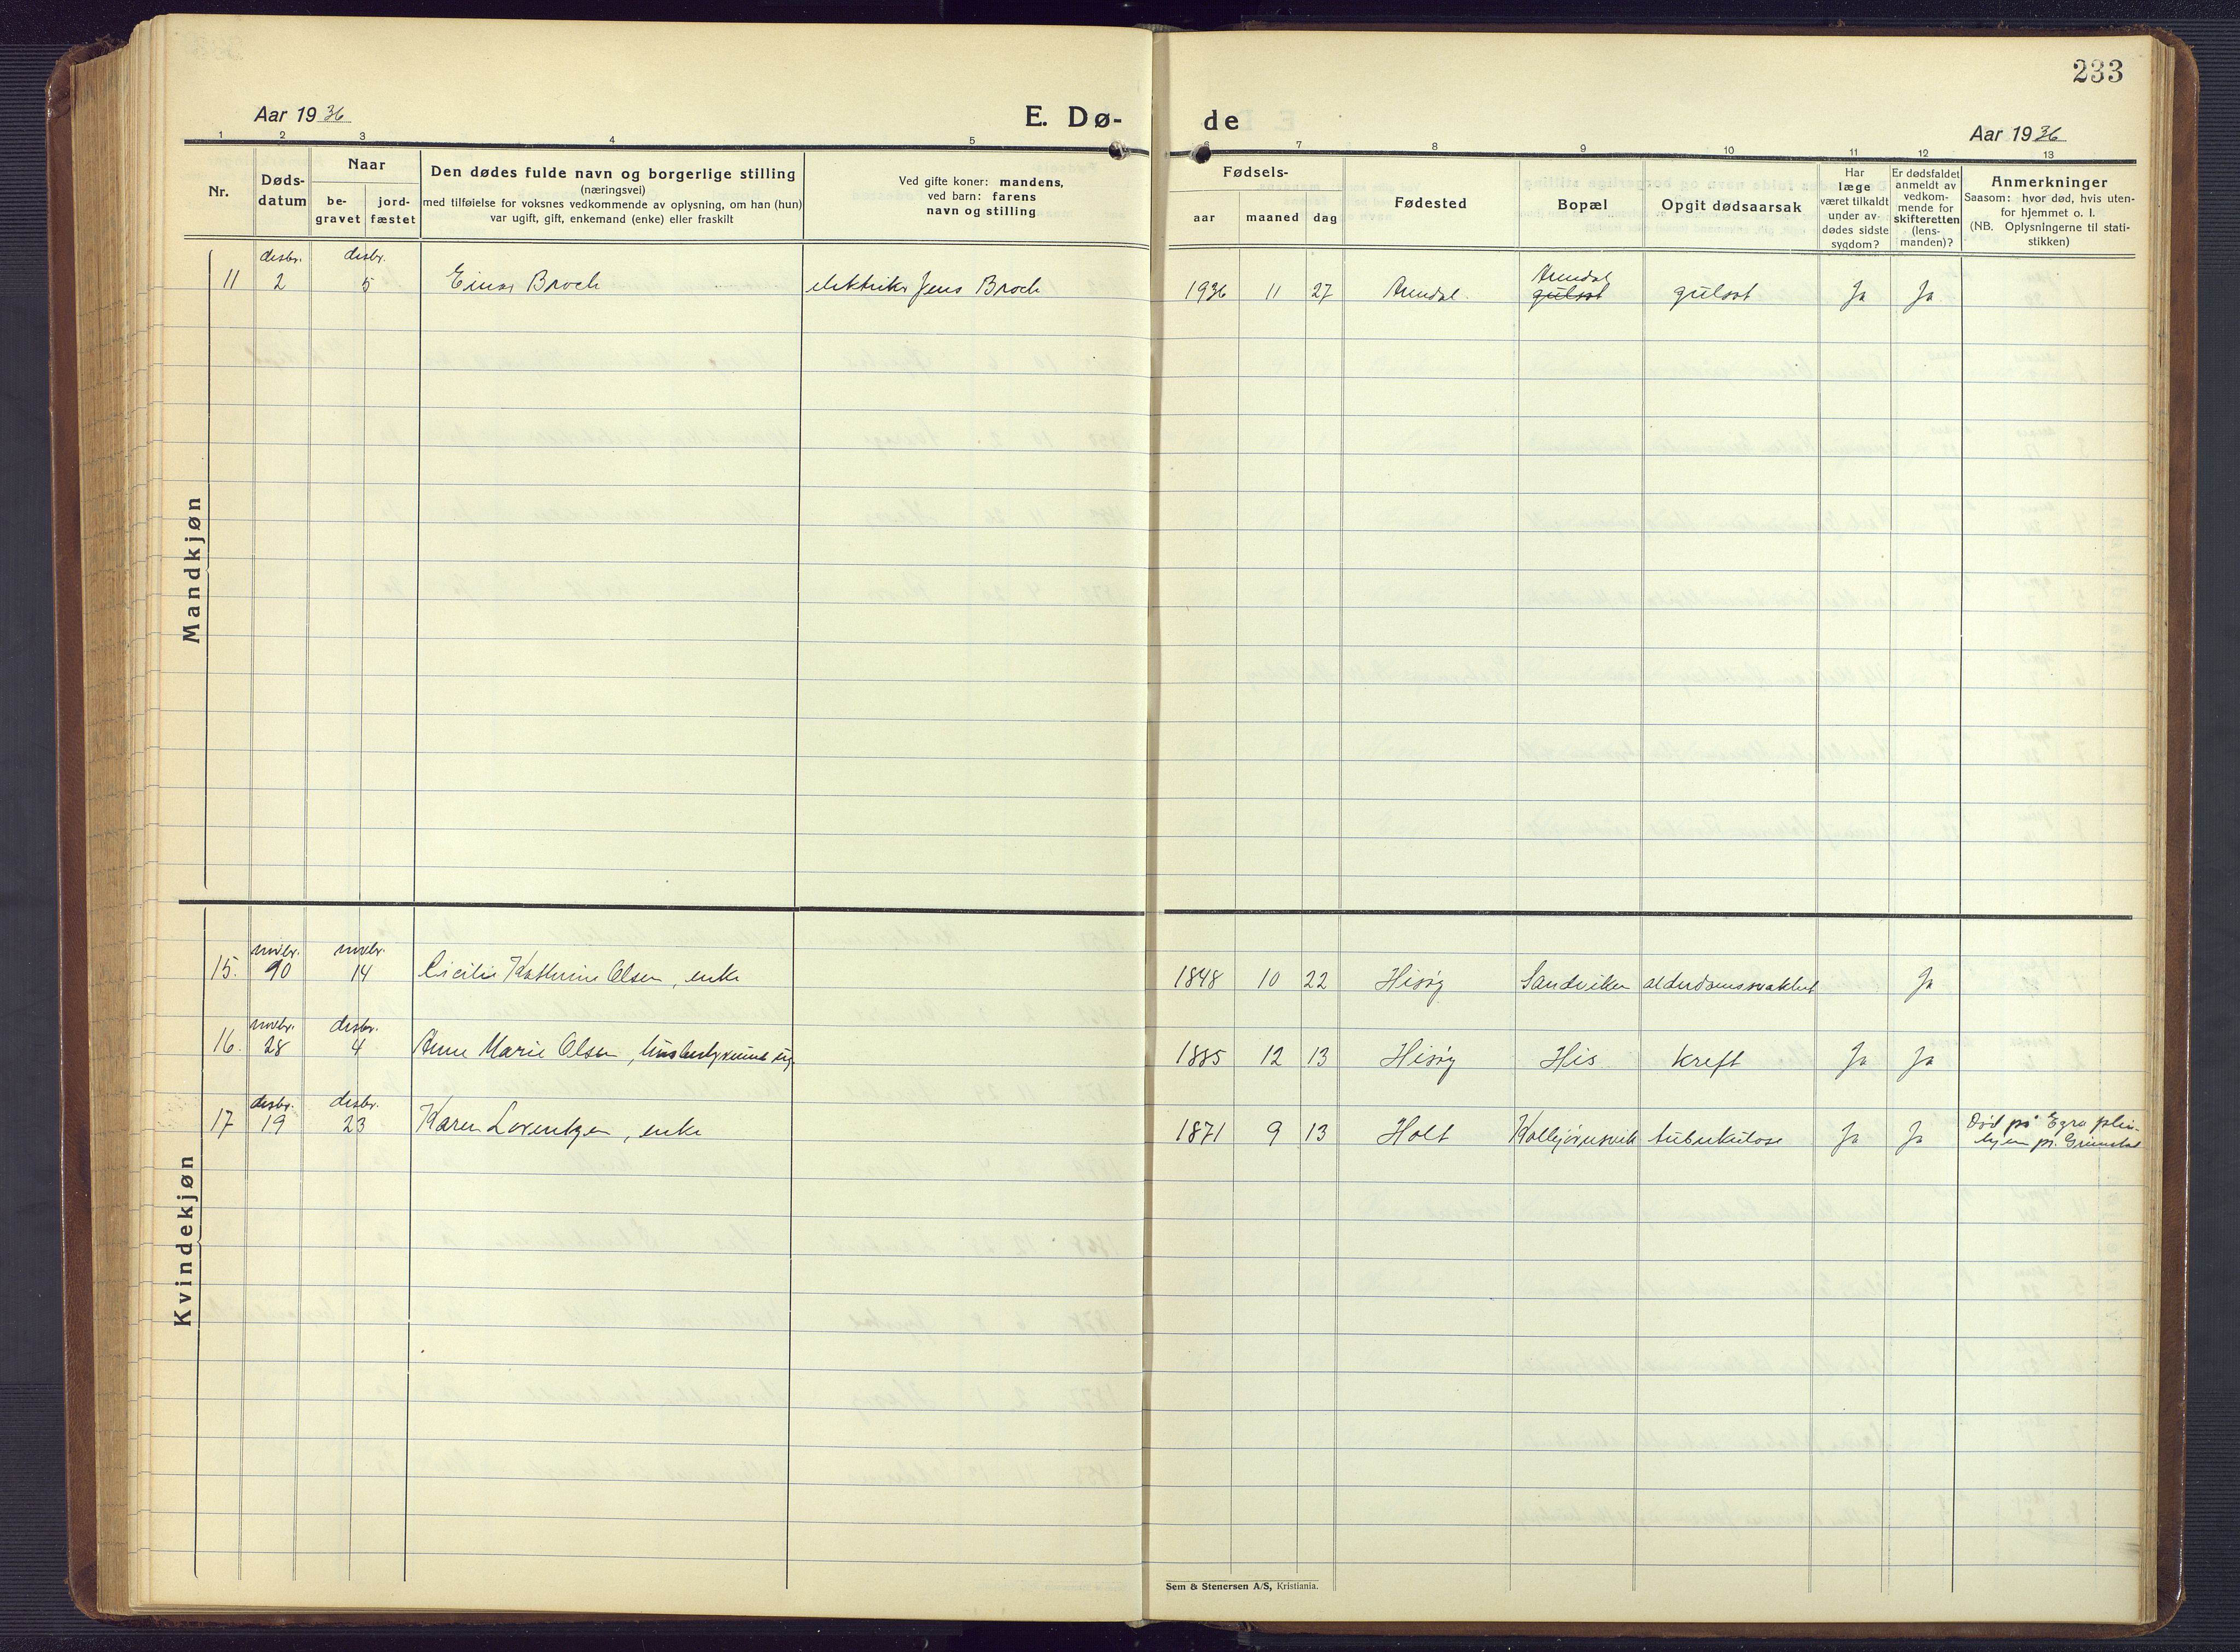 233
Aar 1936
E. Dø-
de
Aar 1936
1 2 3 4 5 6 7 8 9 10 11 12 13
Nr.
Døds-
datum
Naar
be-
gravet
jord-
fæstet
Den dødes fulde navn og borgerlige stilling
(næringsvei)
med tilføielse for voksnes vedkommende av oplysning, om han (hun)
var ugift, gift, enkemand (enke) eller fraskilt
Ved gifte koner: mandens,
ved barn: farens
navn og stilling
Fødsels-
aar maaned dag
Fødested
Bopæl
Opgit dødsaarsak
Har
læge
været tilkaldt
under av-
dødes sidste
sygdom?
Er dødsfaldet
anmeldt av
vedkom-
mende for
skifteretten
(lens-
manden)?
Anmerkninger
Saasom: hvor død, hvis uten-
for hjemmet o. l.
(NB. Oplysningerne til stati-
stikken)
Mandkjøn
desbr. desbr. Arendal
11 2 5 Einar Broch elektriker Jens Broch 1936 11 27 Arendal. gulsot gulsot Ja Ja
Kvindekjøn
novbr. novbr.
15. 90 14 Cicilie Kathrine Olsen, enke 1848 10 22 Hisøy Sandviken alderdomssvakhet Ja
novbr. desbr.
16. 28 4 Anne Marie Olsen, husbestyrerinne ug. 1885 12 13 Hisøy His Kreft Ja Ja
desbr. desbr.
17 19 23 Karen Lorentzen, enke 1871 9 13 Holt Kolbjørnsvik tuberkulose Ja Ja Død på plei-
hjem pr. Grimstad
Sem & Stenersen A/S, Kristiania.